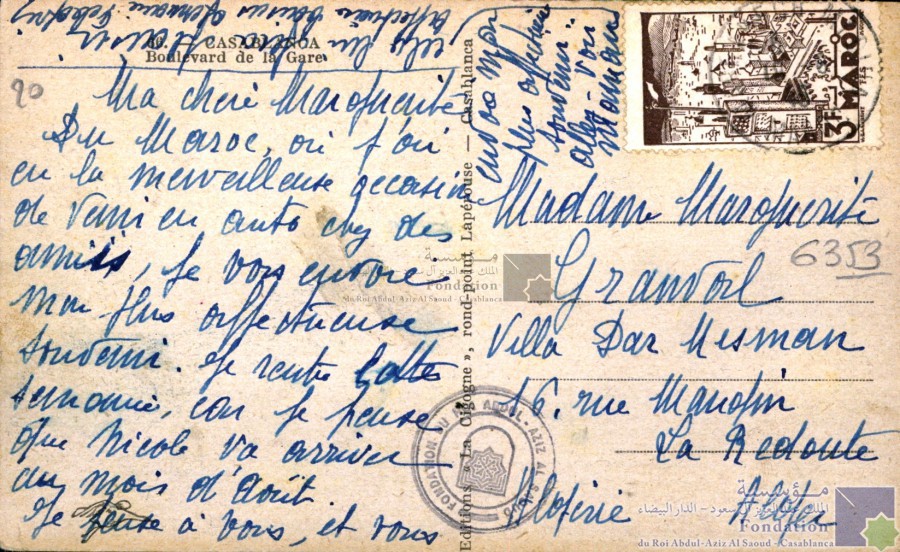 60. CASABLANCA
Boulevard de la Gare
20
Ma chere Marguerite
Du Maroc, où j'ai
eu la merveilleuse occasion
de venir en auto chez des
amis, je vous envoie
mon plus affectueuse
souvenir. Je rentre cette
semaine, car je pense
que Nicole va arriver
au mois d'Août.
Je pense à vous, et vous
envoie mon
plus affectueux
souvenir
Editions « La Cigogne », rond-point Lapérouse — Casablanca
3F
MAROC
Madame Marguerite
Granvol
Villa Dar Mesman
16. rue
La Redoute
Algérie Alger
6353
FONDATION DU ROI ABDUL-AZIZ AL SAOUD
مؤسسة
الملك عبد العزيز آل سعود - الدار البيضاء
Fondation
du Roi Abdul-Aziz Al Saoud - Casablanca
مؤسسة
الملك عبد العزيز آل سعود - الدار البيضاء
Fondation
du Roi Abdul-Aziz Al Saoud - Casablanca